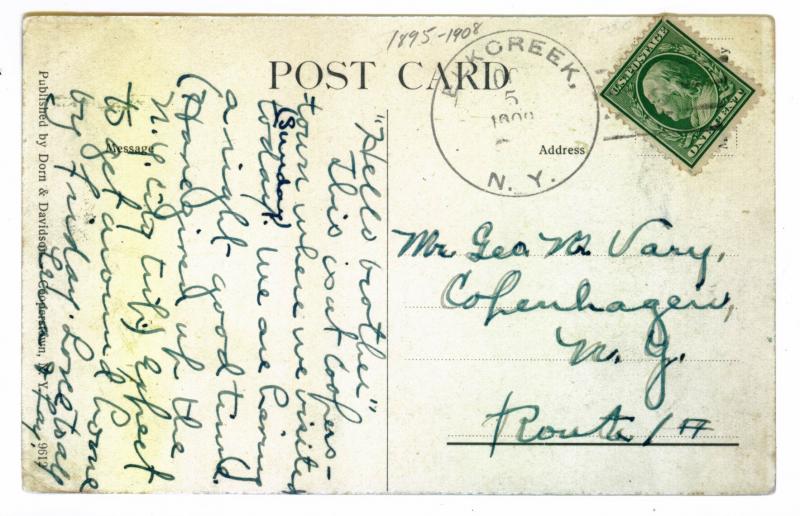 1895-1908
POST CARD
Message
Address
ELK CREEK,
OC
5
1908
N. Y.
U.S. POSTAGE
ONE CENT
"Hello brother"
This is at Coopers-
town where we visited
today. (Sunday) We are having
a right good time.
(Have gived up the
N.Y. city trip) Expect
to get around home
by friday. Love to all
Published by Dorn & Davidson, Cooperstown, N. Y.
9619
Mr. Geo. M. Vary,
Copenhagen,
N. Y.
Route 1